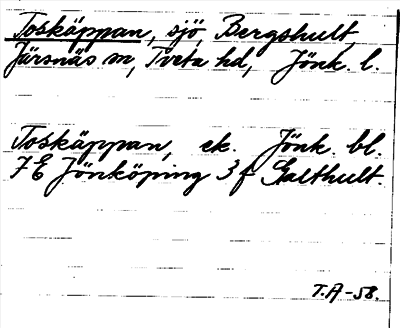 Toskäppan, sjö, Bergshult,
Järsnäs sn, Tveta hd, Jönk. l.
Toskäppan, ek. Jönk. bl.
7E Jönköping 3f Galthult.
T.A-58.